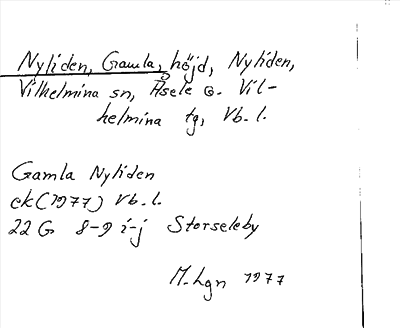 Nyliden, Gamla, höjd, Nyliden,
Vilhelmina sn, Åsele o. Vil-
helmina tg, Vb. l.
Gamla Nyliden
ek (1977) Vb. l.
22 G 8-9 i-j Storseleby
M. Lgn 1977